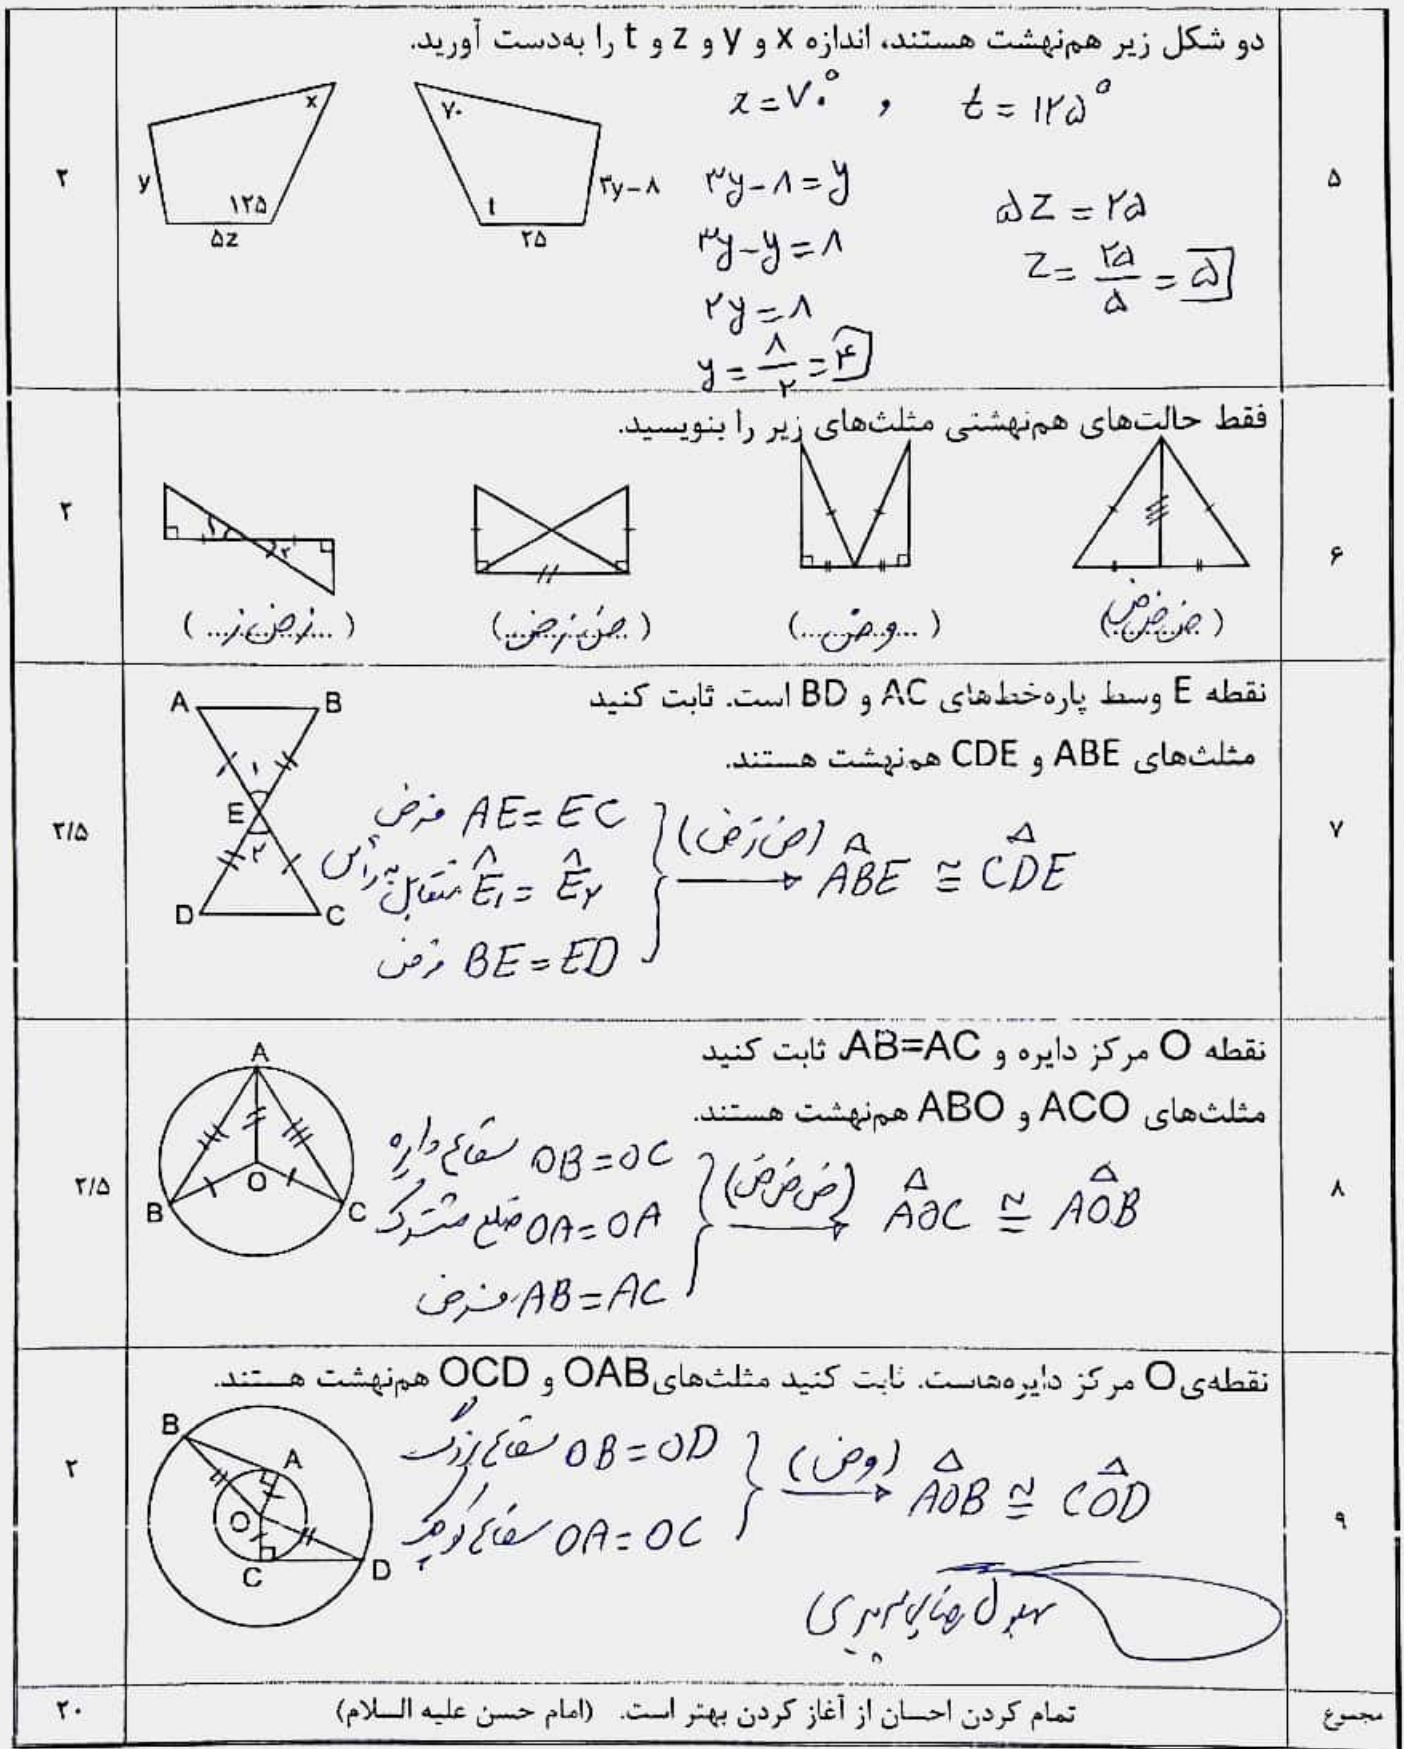 ۵
دو شکل زیر هم‌نهشت هستند، اندازه x و y و z و t را به‌دست آورید.
۲
x
y
۱۲۵
۵z
۷۰
t
۲۵
۳y-۸
x = ۷۰° , t = ۱۲۵°
۳y-۸ = y
۳y-y = ۸
۲y = ۸
y = ۸/۲ = ۴
۵z = ۲۵
z = ۲۵/۵ = ۵
۶
فقط حالت‌های هم‌نهشتی مثلث‌های زیر را بنویسید.
۲
۱
۲
(ض ض ض)
(...و ض...)
(ض ز ض)
(...ز ض ز...)
۷
نقطه E وسط پاره‌خط‌های AC و BD است. ثابت کنید
مثلث‌های ABE و CDE هم‌نهشت هستند.
۲/۵
A B
۱
E
۲
D C
فرض AE = EC
متقابل به رأس Ê₁ = Ê₂
فرض BE = ED
(ض ز ض)
ABE ≅ CDE
۸
نقطه O مرکز دایره و AB=AC، ثابت کنید
مثلث‌های ACO و ABO هم‌نهشت هستند.
۲/۵
A
O
B C
شعاع دایره OB = OC
ضلع مشترک OA = OA
فرض AB = AC
(ض ض ض)
AOC ≅ AOB
۹
نقطه‌ی O مرکز دایره‌هاست. ثابت کنید مثلث‌های OAB و OCD هم‌نهشت هستند.
۲
B
A
O
C D
شعاع بزرگ OB = OD
شعاع کوچک OA = OC
(وض)
AOB ≅ COD
مجموع
تمام کردن احسان از آغاز کردن بهتر است. (امام حسن علیه السلام)
۲۰